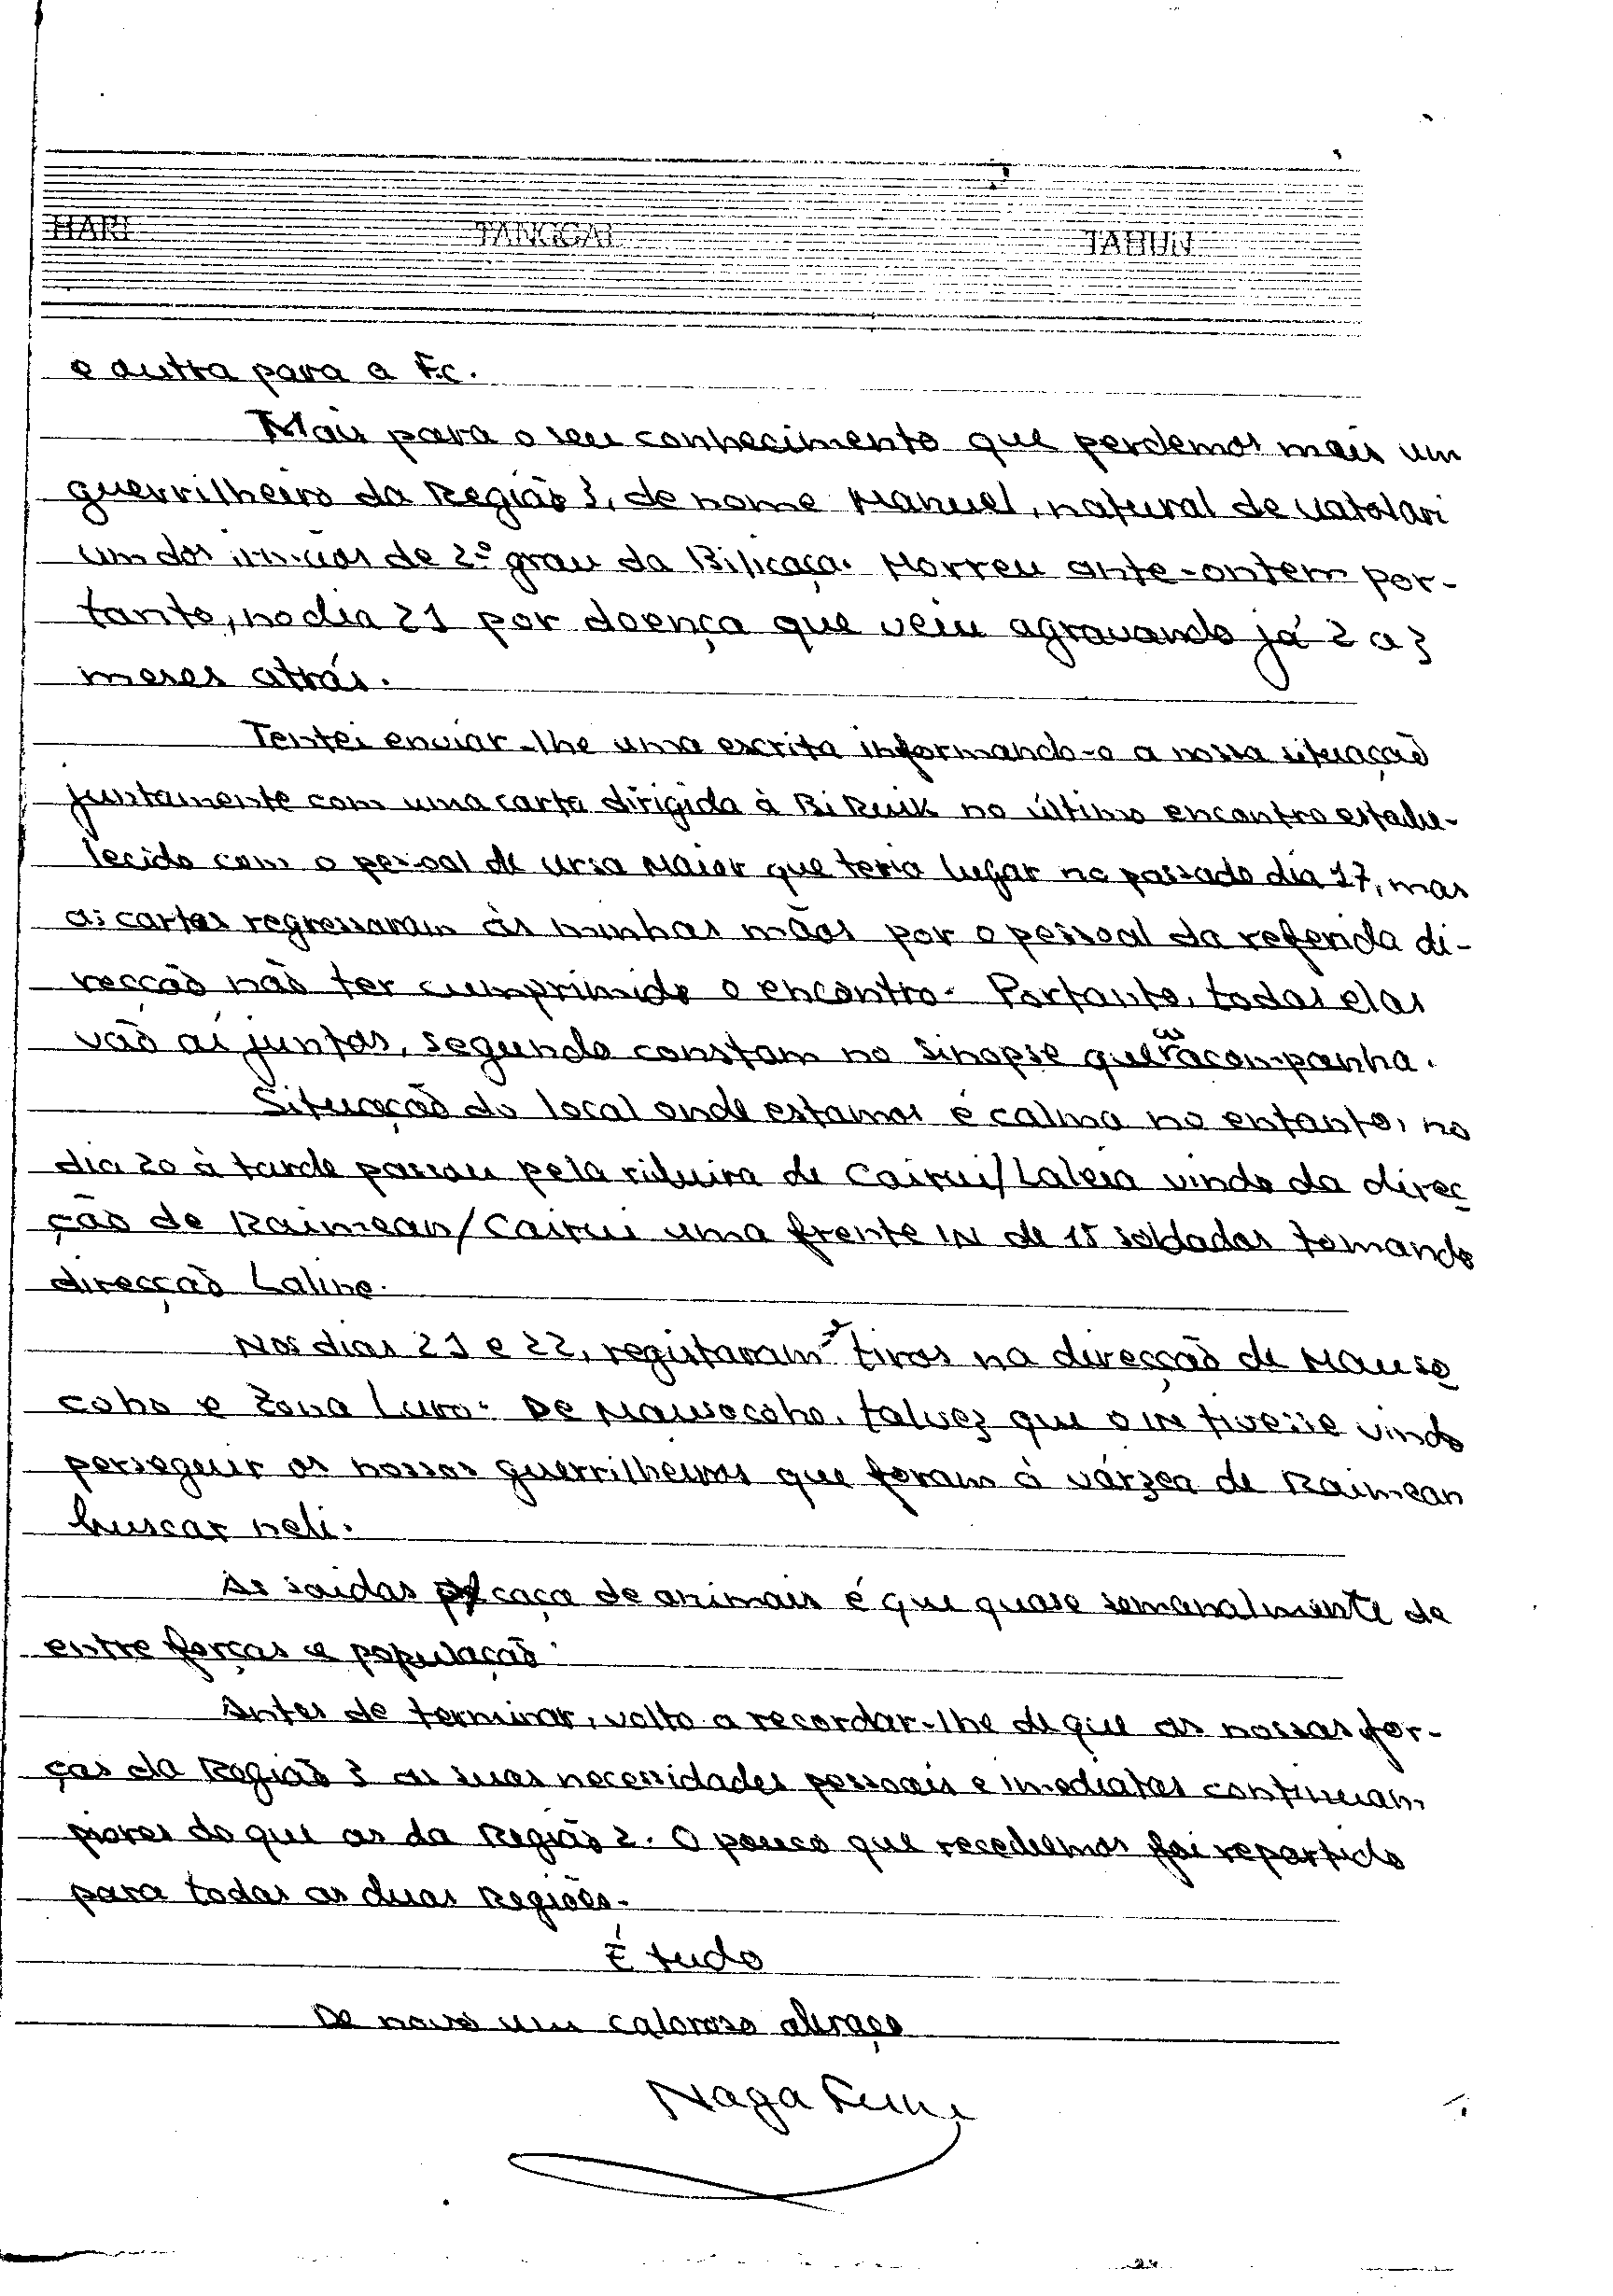 HARI TANGGAL TAHUN
e outra para a F.C.
Mais para o seu conhecimento que perdemos mais um
guerrilheiro da Região 3, de nome Manuel, natural de Uatolari
um dos irmãos de 2º grau da Bilicaça. Morreu ante-ontem por-
tanto, no dia 21 por doença que veiu agravando já 2 a 3
meses atrás.
Tentei enviar-lhe uma escrita informando-o a nossa situação
juntamente com uma carta dirigida à Bi Ruik no último encontro estabe-
lecido com o pessoal de Ursa Maior que teria lugar no passado dia 17, mas
as cartas regressaram às minhas mãos por o pessoal da referida di-
recção não ter cumprimido o encontro. Portanto, todas elas
vão aí juntas, segundo constam no sinopse que as acompanha.
Situação do local onde estamos é calma no entanto, no
dia 20 à tarde passou pela ribeira de Cairui/Laleia vindo da direc
ção de Raimean/Cairui uma frente IN de 15 soldados tomando
direcção Laline.
Nos dias 21 e 22, registaram tiros na direcção de Mauso
coho e Zona Luro. De Mausocoho, talvez que o IN tivesse vindo
perseguir os nossos guerrilheiros que foram à várzea de Raimean
buscar neli.
As saídas p/ caça de animais é que quase semanalmente de
entre forças e população.
Antes de terminar, volto a recordar-lhe de que as nossas for-
ças da Região 3 as suas necessidades pessoais e imediatas continuam
piores do que as da Região 2. O pouco que recebemos foi repartido
para todas as duas Regiões.
É tudo
De novo um caloroso abraço
Naga